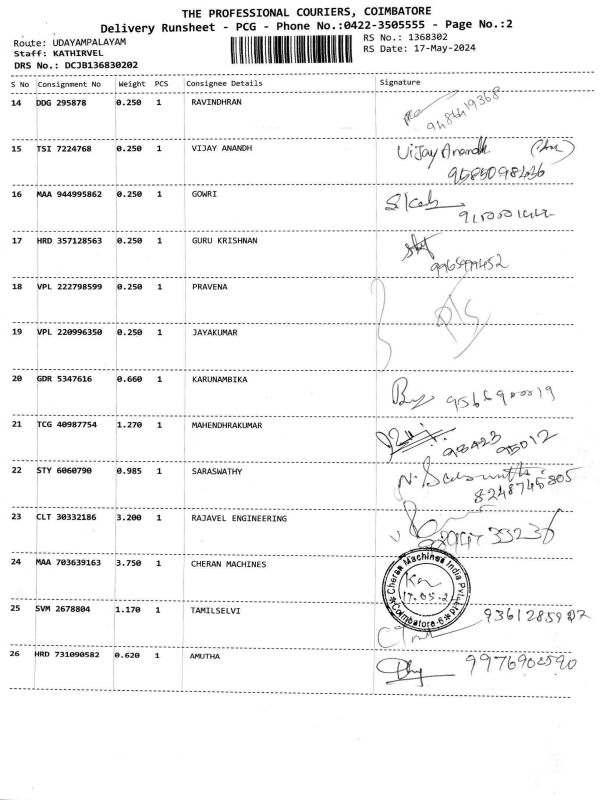 THE PROFESSIONAL COURIERS, COIMBATORE
Delivery Runsheet - PCG - Phone No.:0422-3505555 - Page No.:2
Route: UDAYAMPALAYAM RS No.: 1368302
Staff: KATHIRVEL RS Date: 17-May-2024
DRS No.: DCJB136830202
S No Consignment No Weight PCS Consignee Details Signature
14 DDG 295878 0.250 1 RAVINDHRAN
9484419368
15 TSI 7224768 0.250 1 VIJAY ANANDH Vijay Anandh
9585098436
16 MAA 944995862 0.250 1 GOWRI
17 HRD 357128563 0.250 1 GURU KRISHNAN
18 VPL 222798599 0.250 1 PRAVENA
19 VPL 220996350 0.250 1 JAYAKUMAR
20 GDR 5347616 0.660 1 KARUNAMBIKA
21 TCG 40987754 1.270 1 MAHENDHRAKUMAR
98423 95012
22 STY 6060790 0.985 1 SARASWATHY
8248745805
23 CLT 30332186 3.200 1 RAJAVEL ENGINEERING
24 MAA 703639163 3.750 1 CHERAN MACHINES
Cheran Machines India Pvt Ltd
17.05.2
Coimbatore-6
25 SVM 2678804 1.170 1 TAMILSELVI
26 HRD 731090582 0.620 1 AMUTHA 9976902590